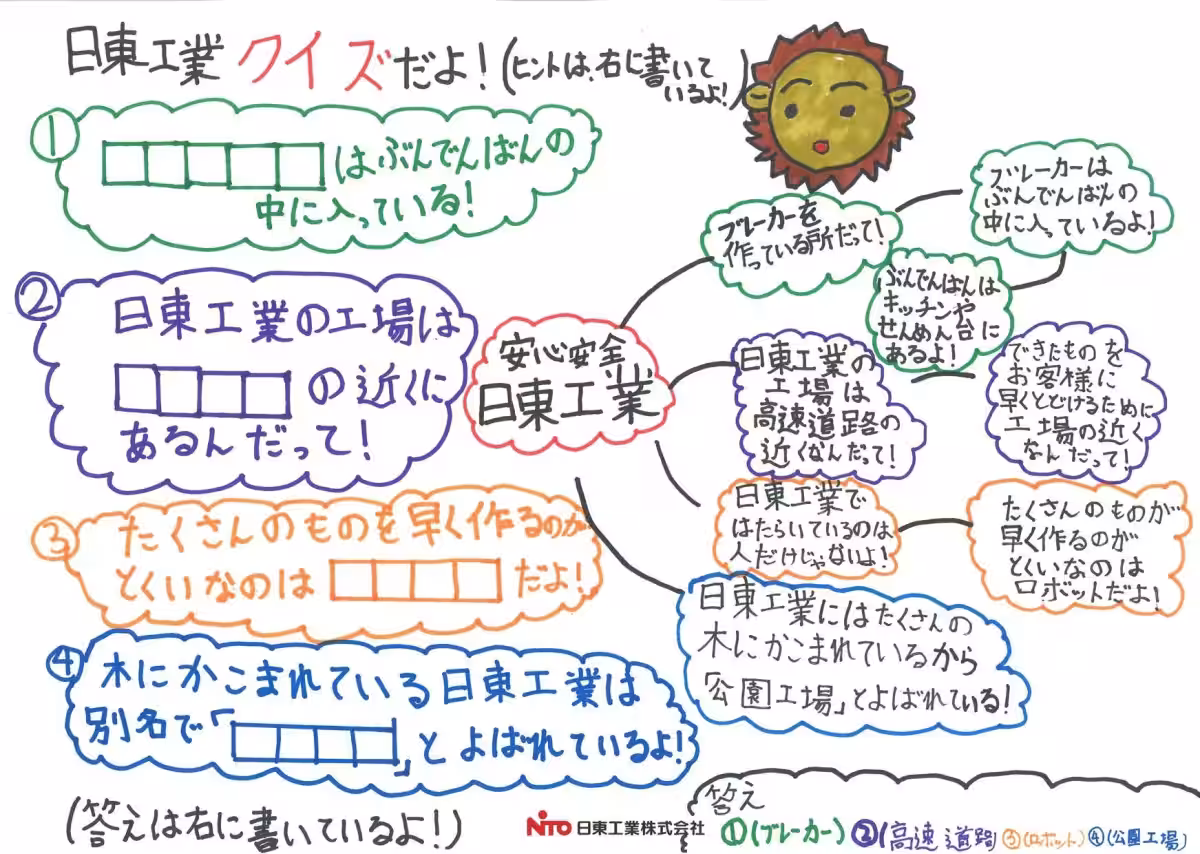 日東工業 クイズだよ！(ヒントは、右に書いて
いるよ！)
① □□□□□はぶんでんばんの
中に入っている！
② 日東工業の工場は
□□□□の近くに
あるんだって！
③ たくさんのものを早く作るのが
とくいなのは□□□□だよ！
④ 木にかこまれている日東工業は
別名で「□□□□」とよばれているよ！
(答えは右に書いているよ！)
安心安全
日東工業
ブレーカーを
作っている所だって！
ブレーカーは
ぶんでんばんの
中に入っているよ！
ぶんでんばんは
キッチンや
せんめん台に
あるよ！
日東工業の
工場は
高速道路の
近くなんだって！
できたものを
お客様に
早くとどけるために
工場の近く
なんだって！
日東工業で
はたらいているのは
人だけじゃないよ！
たくさんのものが
早く作るのが
とくいなのは
ロボットだよ！
日東工業にはたくさんの
木にかこまれているから
「公園工場」とよばれている！
NITO 日東工業株式会社
答え
①(ブレーカー) ②(高速道路 ③(ロボット) ④(公園工場)